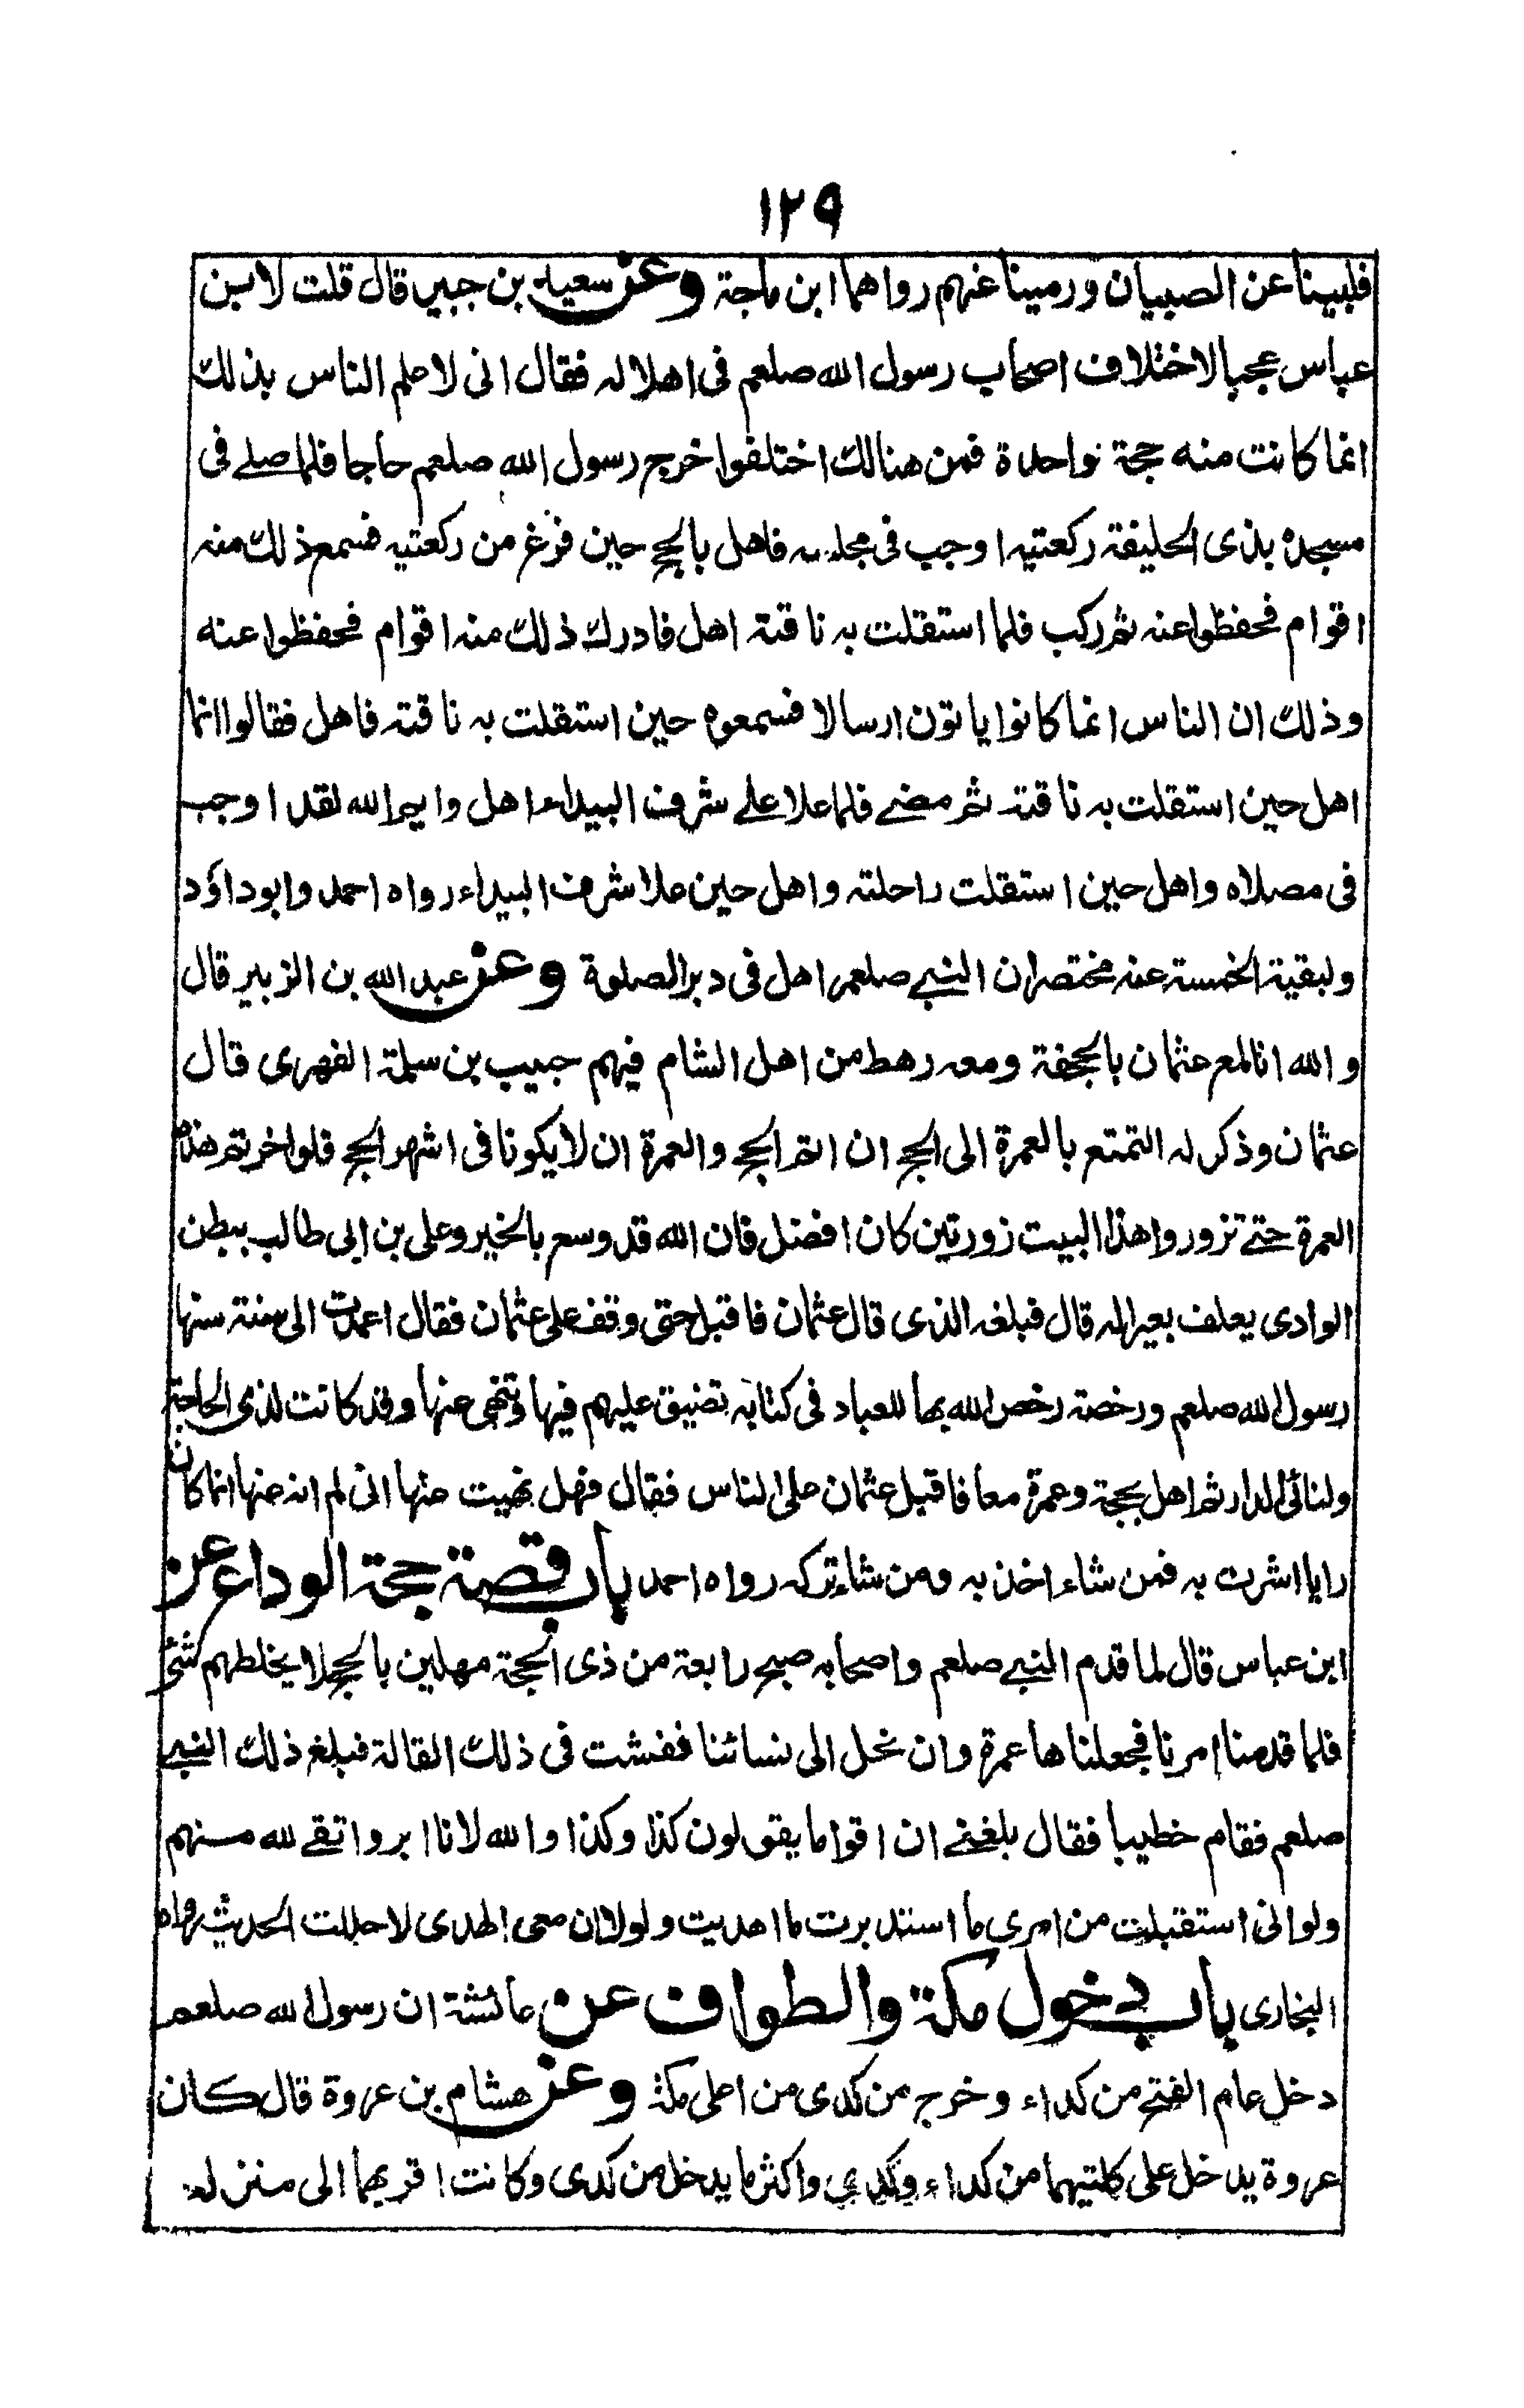 ١٢٩
فلبينا عن الصبيان ورمينا عنهم رواهما ابن ماجة وعن سعيد بن جبير قال قلت لابن
عباس عجبا لاختلاف اصحاب رسول الله صلعم فى اهلاله فقال انى لاعلم الناس بذلك
انما كانت منه حجة واحدة فمن هنالك اختلفوا خرج رسول الله صلعم حاجا فلما صلے فى
مسجده بذى الحليفة ركعتيه اوجب فى مجلسه فاهل بالحج حين فرغ من ركعتيه فسمع ذلك منه
اقوام فحفظوا عنه ثم ركب فلما استقلت به ناقته اهل فادرك ذلك منه اقوام فحفظوا عنه
وذلك ان الناس انما كانوا ياتون ارسالا فسمعوه حين استقلت به ناقته فاهل فقالوا انما
اهل حين استقلت به ناقته ثم مضے فلما علا علے شرف البيداء اهل وايم الله لقد اوجب
فى مصلاه واهل حين استقلت راحلته واهل حين علا شرف البيداء رواه احمد وابوداؤد
ولبقية الخمسة عنه مختصرا ن النبے صلعم اهل فى دبر الصلوة وعن عبد الله بن الزبير قال
والله انا لمع عثمان بالجحفة ومعه رهط من اهل الشام فيهم حبيب بن سلمة الفهرى قال
عثمان وذكر له التمتع بالعمرة الى الحج ان اتم الحج والعمرة ان لا يكونا فى اشهر الحج فلو اخرتم هذه
العمرة حتے تزوروا هذا البيت زورتين كان افضل فان الله قد وسع بالخير وعلى بن ابى طالب ببطن
الوادى يعلف بعيرا له قال فبلغه الذى قال عثمان فاقبل حتى وقف على عثمان فقال اعمدت الى سنة سنها
رسول الله صلعم ورخصة رخص الله بها للعباد فى كتابه تضيق عليهم فيها وتنهى عنها وقد كانت لذى الحاجة
ولنائى الدار ثم اهل بحجة وعمرة معا فاقبل عثمان على الناس فقال فهل نهيت عنها انى لم انه عنها انما كان
رايا اشرت به فمن شاء اخذ به ومن شاء تركه رواه احمد باب قصة حجة الوداع عن
ابن عباس قال لما قدم النبے صلعم واصحابه صبح رابعة من ذى الحجة مهلين بالحج لا يخلطهم شئ
فلما قدمنا امرنا فجعلناها عمرة وان نحل الى نسائنا ففشت فى ذلك القالة فبلغ ذلك النبے
صلعم فقام خطيبا فقال بلغنے ان اقواما يقولون كذا وكذا والله لانا ابر واتقے لله منهم
ولو انى استقبلت من امرى ما استدبرت ما اهديت ولولا ان معى الهدى لاحللت الحديث رواه
البخارى باب دخول مكة والطواف عن عائشة ان رسول الله صلعم
دخل عام الفتح من كداء وخرج من كدى من اعلى مكة وعن هشام بن عروة قال كان
عروة يدخل على كلتيهما من كداء وكدى واكثر ما يدخل من كدى وكانت اقربهما الى منزله